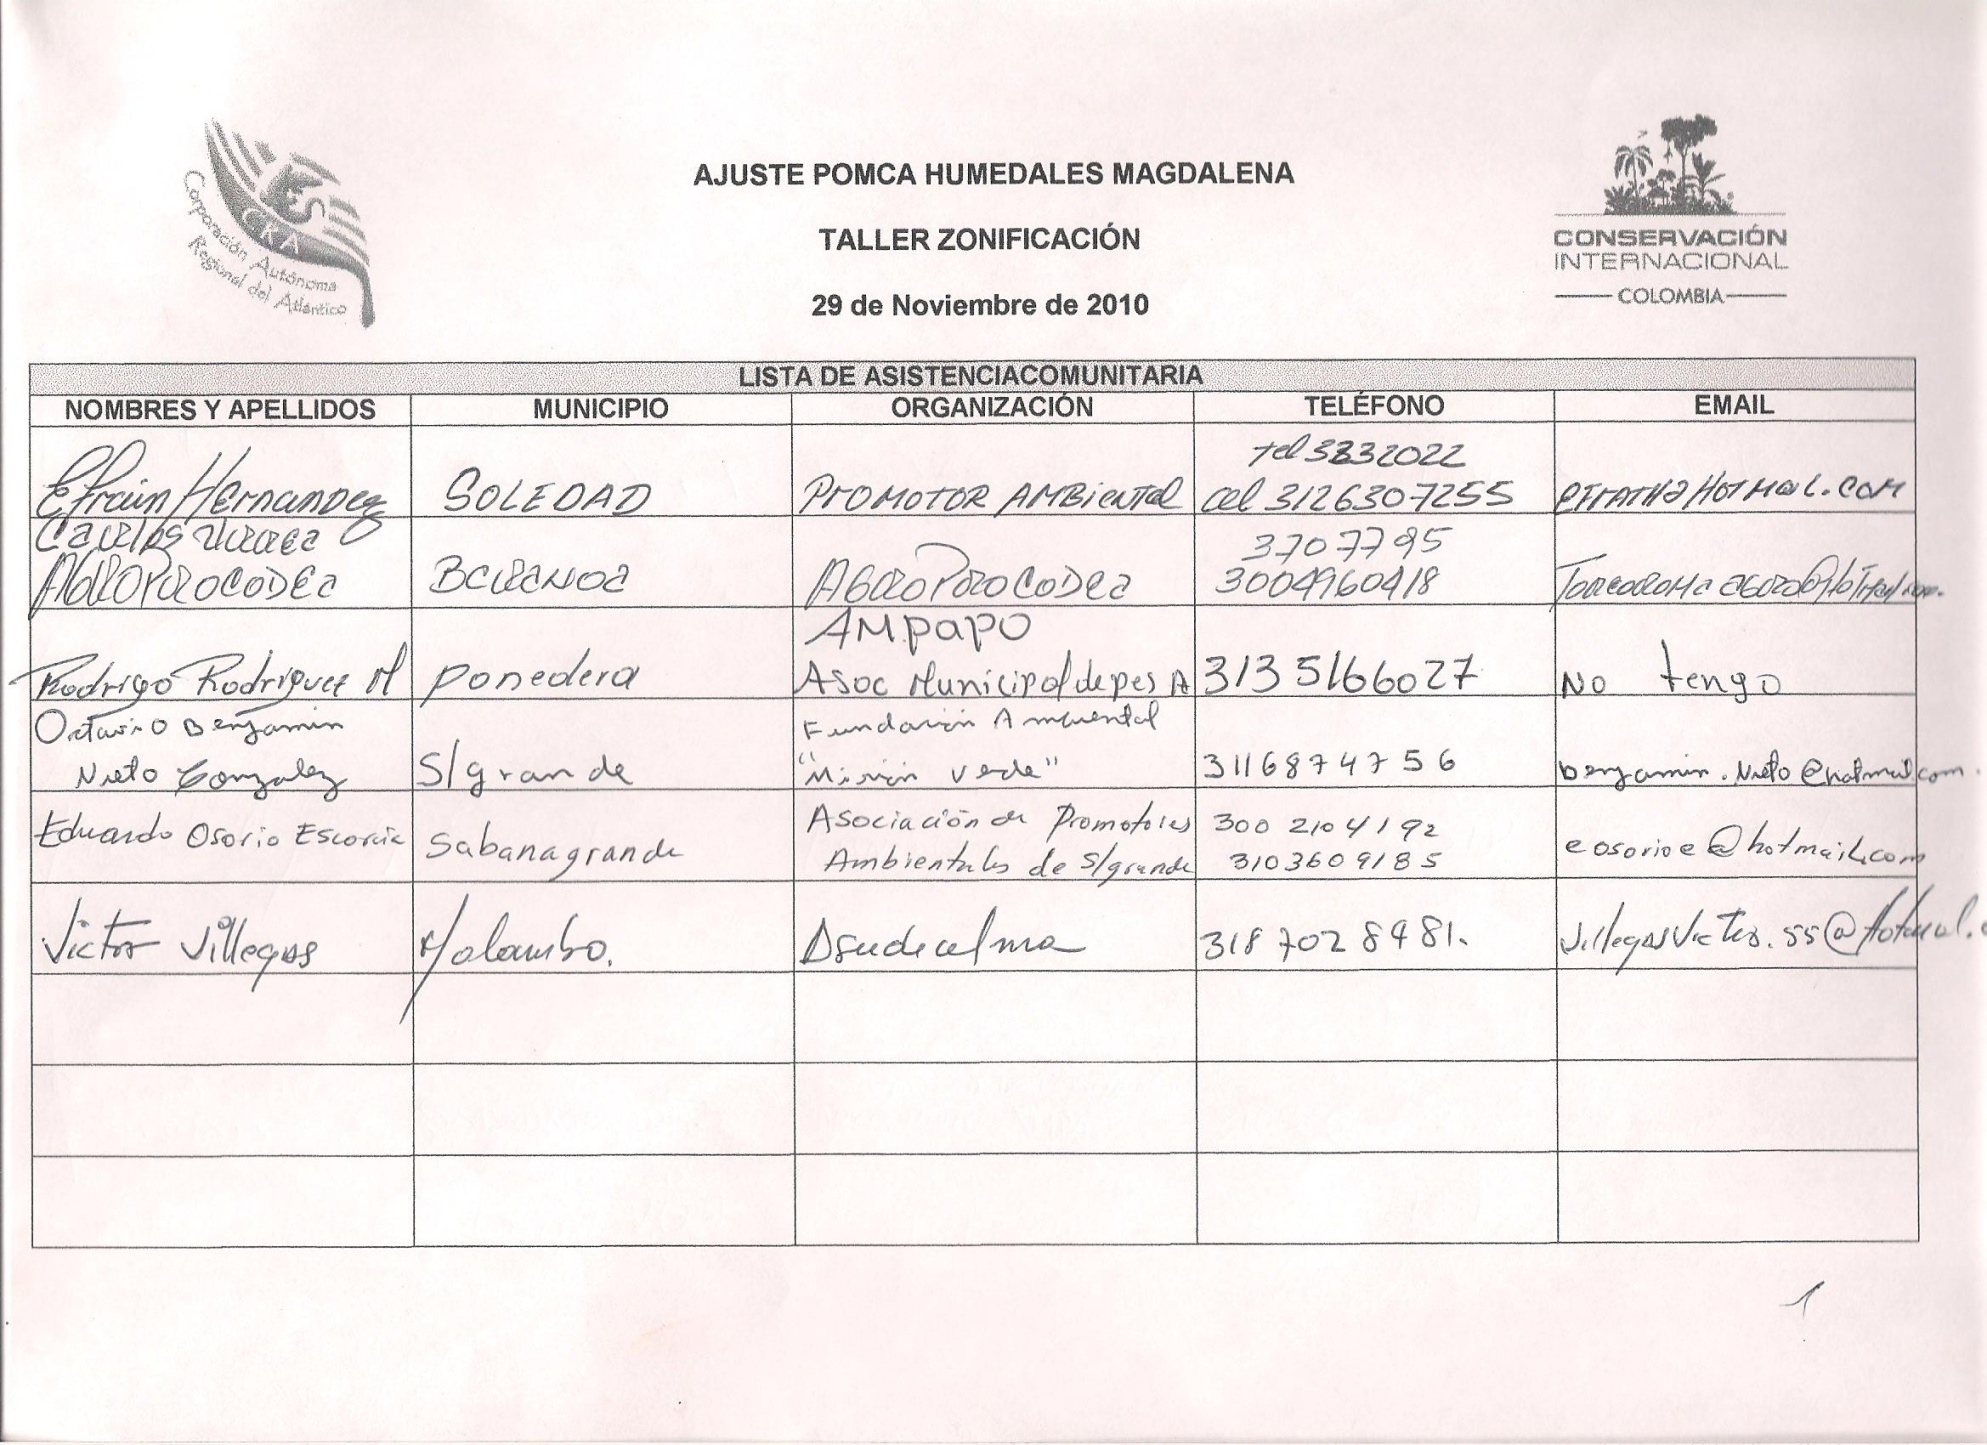 CRA
Corporación Autónoma
Regional del Atlántico
AJUSTE POMCA HUMEDALES MAGDALENA
TALLER ZONIFICACIÓN
29 de Noviembre de 2010
CONSERVACIÓN
INTERNACIONAL
COLOMBIA
LISTA DE ASISTENCIACOMUNITARIA
NOMBRES Y APELLIDOS MUNICIPIO ORGANIZACIÓN TELÉFONO EMAIL
tel 3832022
Efrain Hernandez SOLEDAD PROMOTOR AMBIENTAL cel 3126307255
Carlos 3707795
AGROPROCODEA BARANOA AGROPROCODEA 3004960418
AMPAPO
Rodrigo Rodriguez M Ponedera Asoc Municipal de pes A 3135166027 No tengo
Octavio Benjamin Fundación Ambiental
Nieto Gonzalez S/grande "Misión Verde" 3116874756 benjamin.Nieto@hotmail.com.
Eduardo Osorio Escorcia Sabanagrande Asociación de Promotores 300 2104192
Ambientales de S/grande 3103609185 eosorioe@hotmail.com
Victor Villegas Malambo. Asudealma 318 702 8981. villegasvictor.55@hotmail.c
1